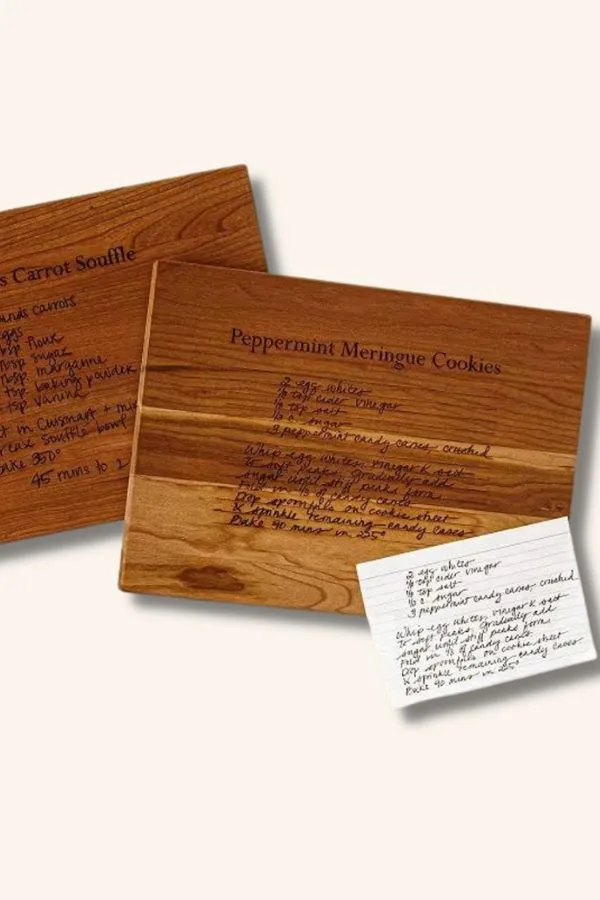 s Carrot Souffle
unds carrots
eggs
tbsp flour
tbsp sugar
tbsp margarine
tsp baking powder
tsp vanilla
t in Cuisinart + mi
rease souffle bowl
bake 350°
45 mins to 1
Peppermint Meringue Cookies
2 egg whites
⅛ tsp cider vinegar
⅛ tsp salt
½ c. sugar
3 peppermint candy canes, crushed
Whip egg whites, vinegar & salt
to soft peaks. Gradually add
sugar until stiff peaks form.
Fold in ⅓ of candy canes.
Drop spoonfuls on cookie sheet
& sprinkle remaining candy canes
Bake 90 mins in 225°
2 egg whites
tsp cider vinegar
tsp salt
½ c. sugar
3 peppermint candy canes, crushed
Whip egg whites, vinegar & salt
to soft peaks. Gradually add
sugar until stiff peaks form.
Fold in ⅓ of candy canes.
Drop spoonfuls on cookie sheet
& sprinkle remaining candy canes
Bake 90 mins in 225°